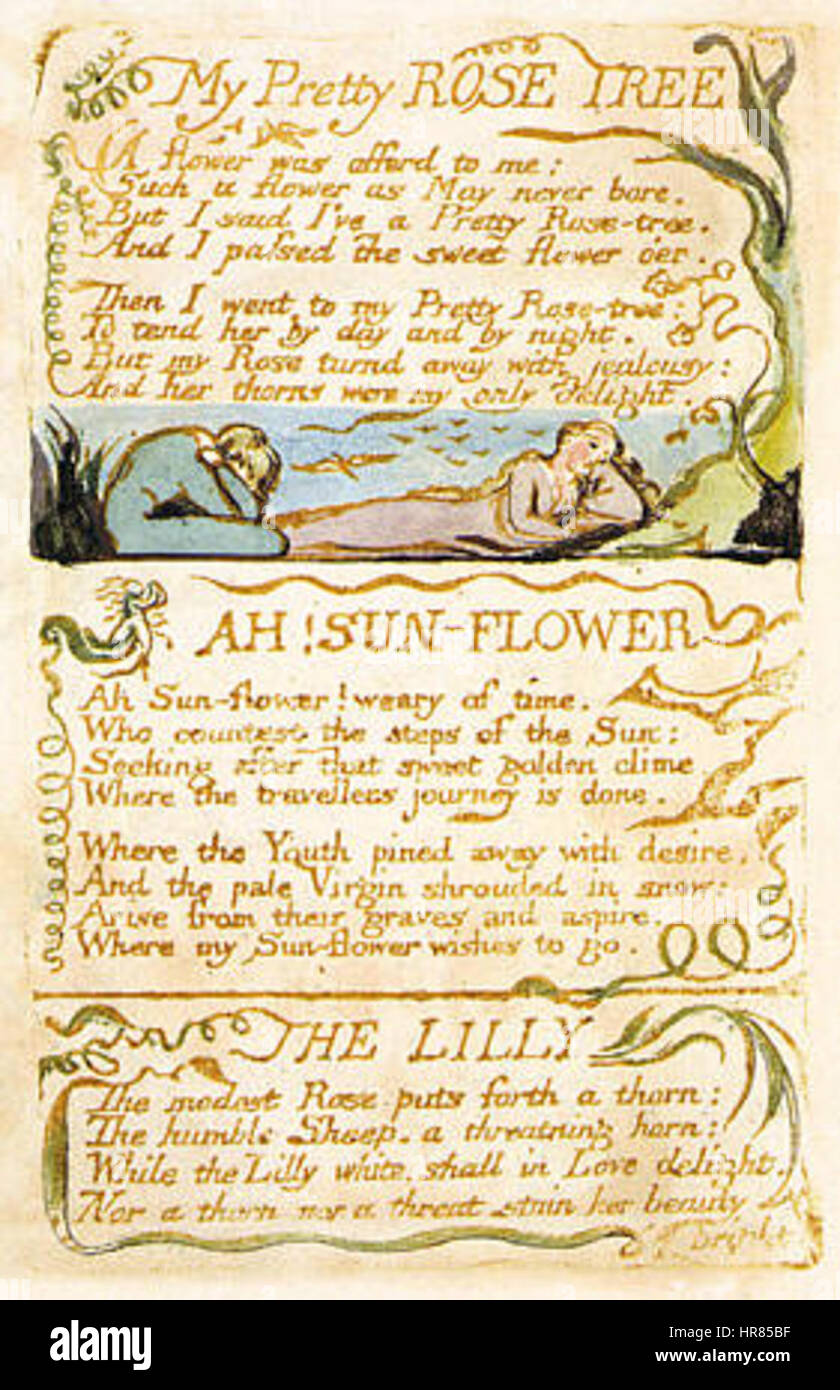 My Pretty ROSE TREE
A flower was offerd to me:
Such a flower as May never bore.
But I said I've a Pretty Rose-tree.
And I paſsed the sweet flower o'er.
Then I went to my Pretty Rose-tree:
To tend her by day and by night.
But my Rose turnd away with jealousy:
And her thorns were my only delight.
AH! SUN-FLOWER
Ah Sun-flower! weary of time.
Who countest the steps of the Sun:
Seeking after that sweet golden clime
Where the travellers journey is done.
Where the Youth pined away with desire,
And the pale Virgin shrouded in snow:
Arise from their graves and aspire.
Where my Sun-flower wishes to go.
THE LILLY
The modest Rose puts forth a thorn:
The humble Sheep. a threatning horn:
While the Lilly white, shall in Love delight,
Nor a thorn nor a threat stain her beauty
bright
alamy
alamy
Image ID: HR85BF
www.alamy.com